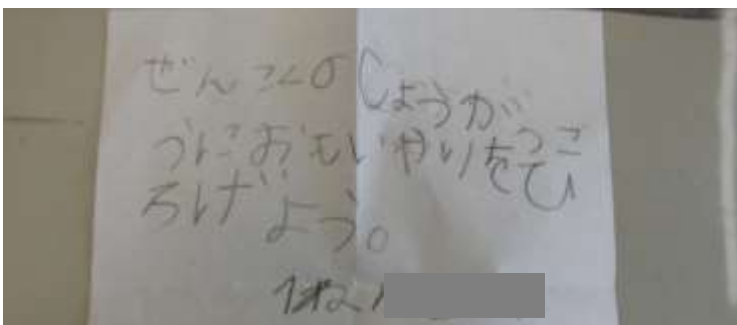 ぜんこくのしょうがっこ
うにおもいやりをひ
ろげよう。
1ね